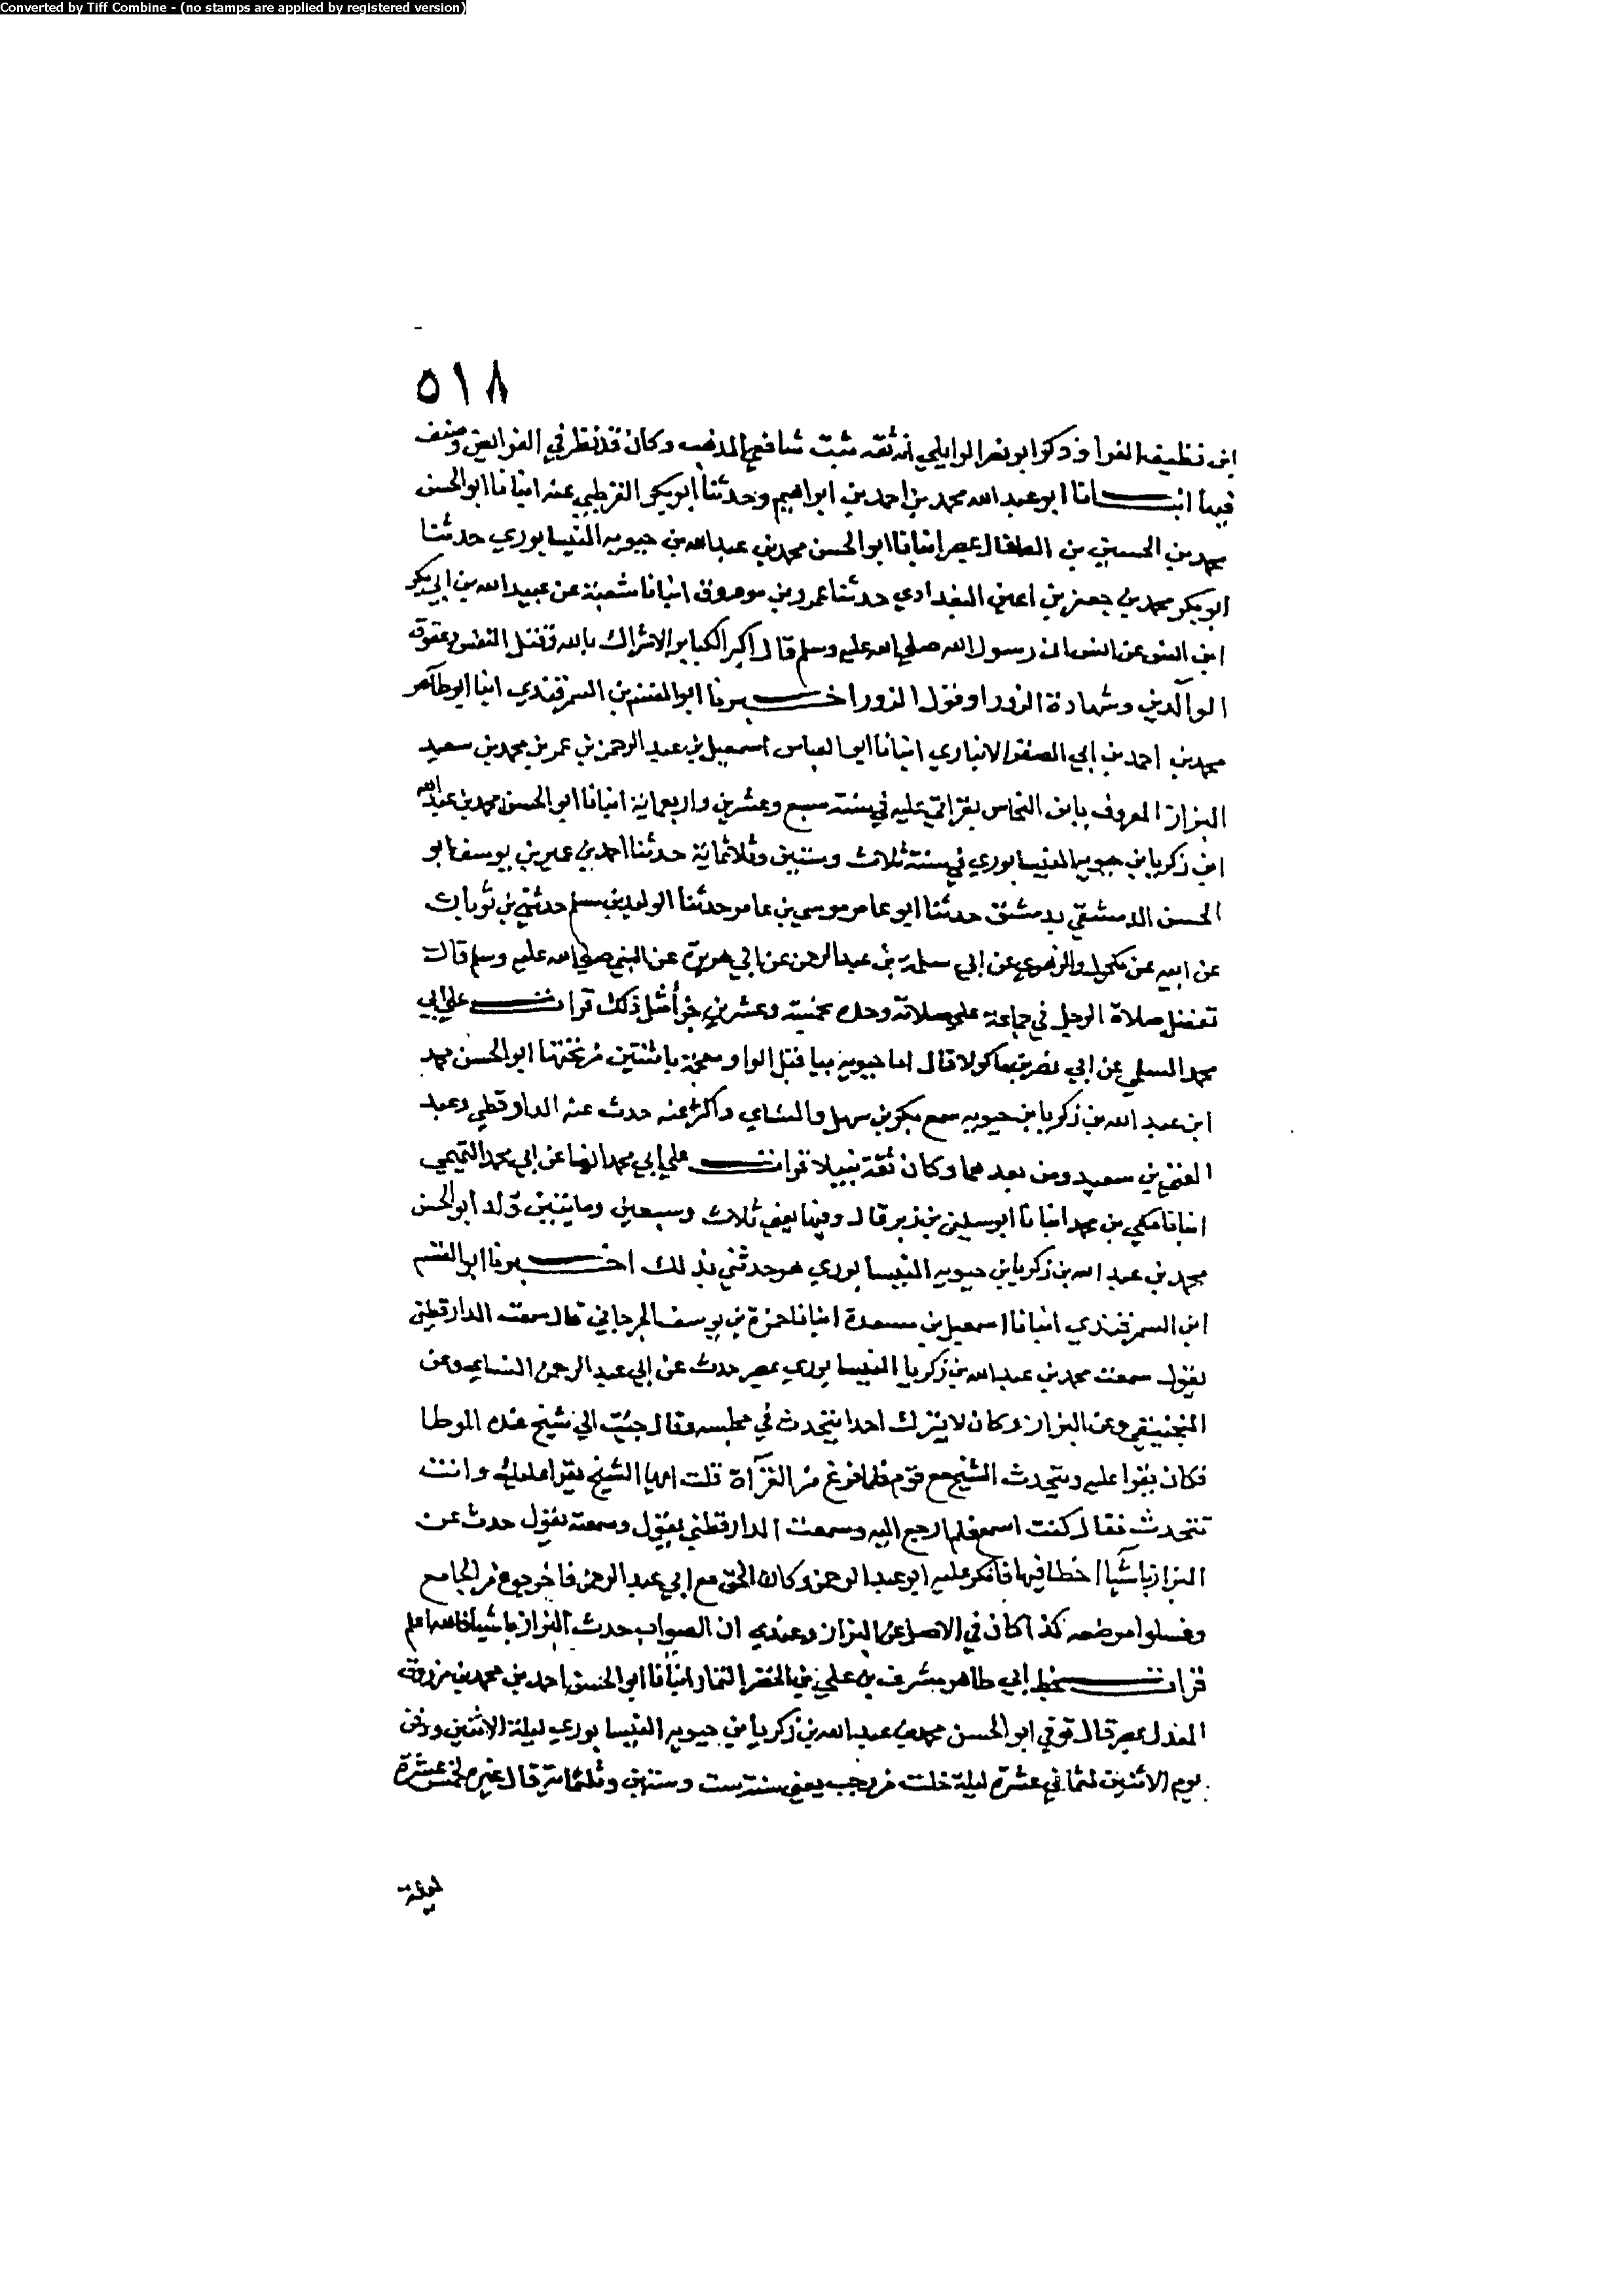 Converted by Tiff Combine - (no stamps are applied by registered version)
٥١٨
ابن نظيف الفرا وذكر ابو نصر الوايلي انه ثقه ثبت شافعي المذهب وكان قد نظر في الفرايض وصنف
فيها انبانا ابو عبد الله محمد بن احمد بن ابراهيم وحدثنا ابو بكر القرطبي عنه انبانا ابو الحسن
محمد بن الحسين بن الطفال بمصر انبانا ابو الحسن محمد بن عبد الله بن حيويه النيسابوري حدثنا
ابو بكر محمد بن جعفر بن اعين البغدادي حدثنا عمرو بن مرزوق انبانا شعبة عن عبيد الله بن ابي بكر
ابن انس عن انس ان رسول الله صلى الله عليه وسلم قال اكبر الكباير الاشراك بالله وقتل النفس وعقوق
الوالدين وشهادة الزور او قول الزور اخبرنا ابو القسم بن السمرقندي انبا ابو طاهر
محمد بن احمد بن ابي الصقر الانباري انبانا ابو العباس اسمعيل بن عبد الرحمن بن عمر بن محمد بن سعيد
البزاز المعروف بابن النحاس بقراتي عليه في سنة سبع وعشرين واربعماية انبانا ابو الحسن محمد بن عبد الله
ابن زكريا بن حيويه النيسابوري في سنة ثلاث وستين وثلاثماية حدثنا احمد بن عمير بن يوسف ابو
الحسن الدمشقي بدمشق حدثنا ابو عامر موسى بن عامر حدثنا الوليد بن مسلم حدثني بن ثوبان
عن ابيه عن مكحول والزهري عن ابي سلمة بن عبد الرحمن عن ابي هريرة عن النبي صلى الله عليه وسلم قال
تفضل صلاة الرجل في جماعة على صلاته وحده بخمسة وعشرين جزأ مثل ذلك قرات على ابي
محمد السلمي عن ابي نصر بن ماكولا قال اما حيويه بيا قبل الواو معجمة باثنتين من تحتها ابو الحسن محمد
ابن عبد الله بن زكريا بن حيويه سمع بكر بن سهل والنساي واكثر عنه حدث عنه الدارقطني وعبد
الغني بن سعيد ومن بعدهما وكان ثقة نبيلا قرات على ابي محمد ايضا عن ابي محمد التميمي
انبانا مكي بن محمد انبانا ابو سليمن بن زبر قال وفيها يعني ثلاث وسبعين ومايتين ولد ابو الحسن
محمد بن عبد الله بن زكريا بن حيويه النيسابوري هو حدثني بذلك اخبرنا ابو القسم
ابن السمرقندي انبانا اسمعيل بن مسعدة انبانا حمزة بن يوسف الجرجاني قال سمعت الدارقطني
يقول سمعت محمد بن عبد الله بن زكريا النيسابوري بمصر حدث عن ابي عبد الرحمن النساي وعن
المنجنيقي وعن البزار وكان لا يترك احدا يتحدث في مجلسه وقال جيت الى شيخ عنده الموطا
فكان يقرا عليه ويتحدث الشيخ مع قوم فلما فرغ من القرآة قلت ايها الشيخ يقرا عليك وانت
تتحدث فقال كنت اسمع فلم ارجع اليه وسمعت الدارقطني يقول وسمعته يقول حدث عن
البزار باشيا اخطا فيها فانكر عليه ابو عبد الرحمن وكان الحق مع ابي عبد الرحمن فاخرجوه من الجامع
وغسلوا موضعه كذا كان في الاصل عن البزار وعندي ان الصواب حدث البزار باشيا والله اعلم
قرات بخط ابي طاهر مشرف بن علي بن الخضر التمار انبانا ابو الحسن احمد بن محمد بن مرزوق
المعدل بمصر قال توفي ابو الحسن محمد بن عبد الله بن زكريا بن حيويه النيسابوري ليلة الاثنين ودفن
يوم الاثنين لثماني عشرة ليلة خلت من رجب يعني سنة ست وستين وثلثماية قال غيره لخمس عشرة
ليلة